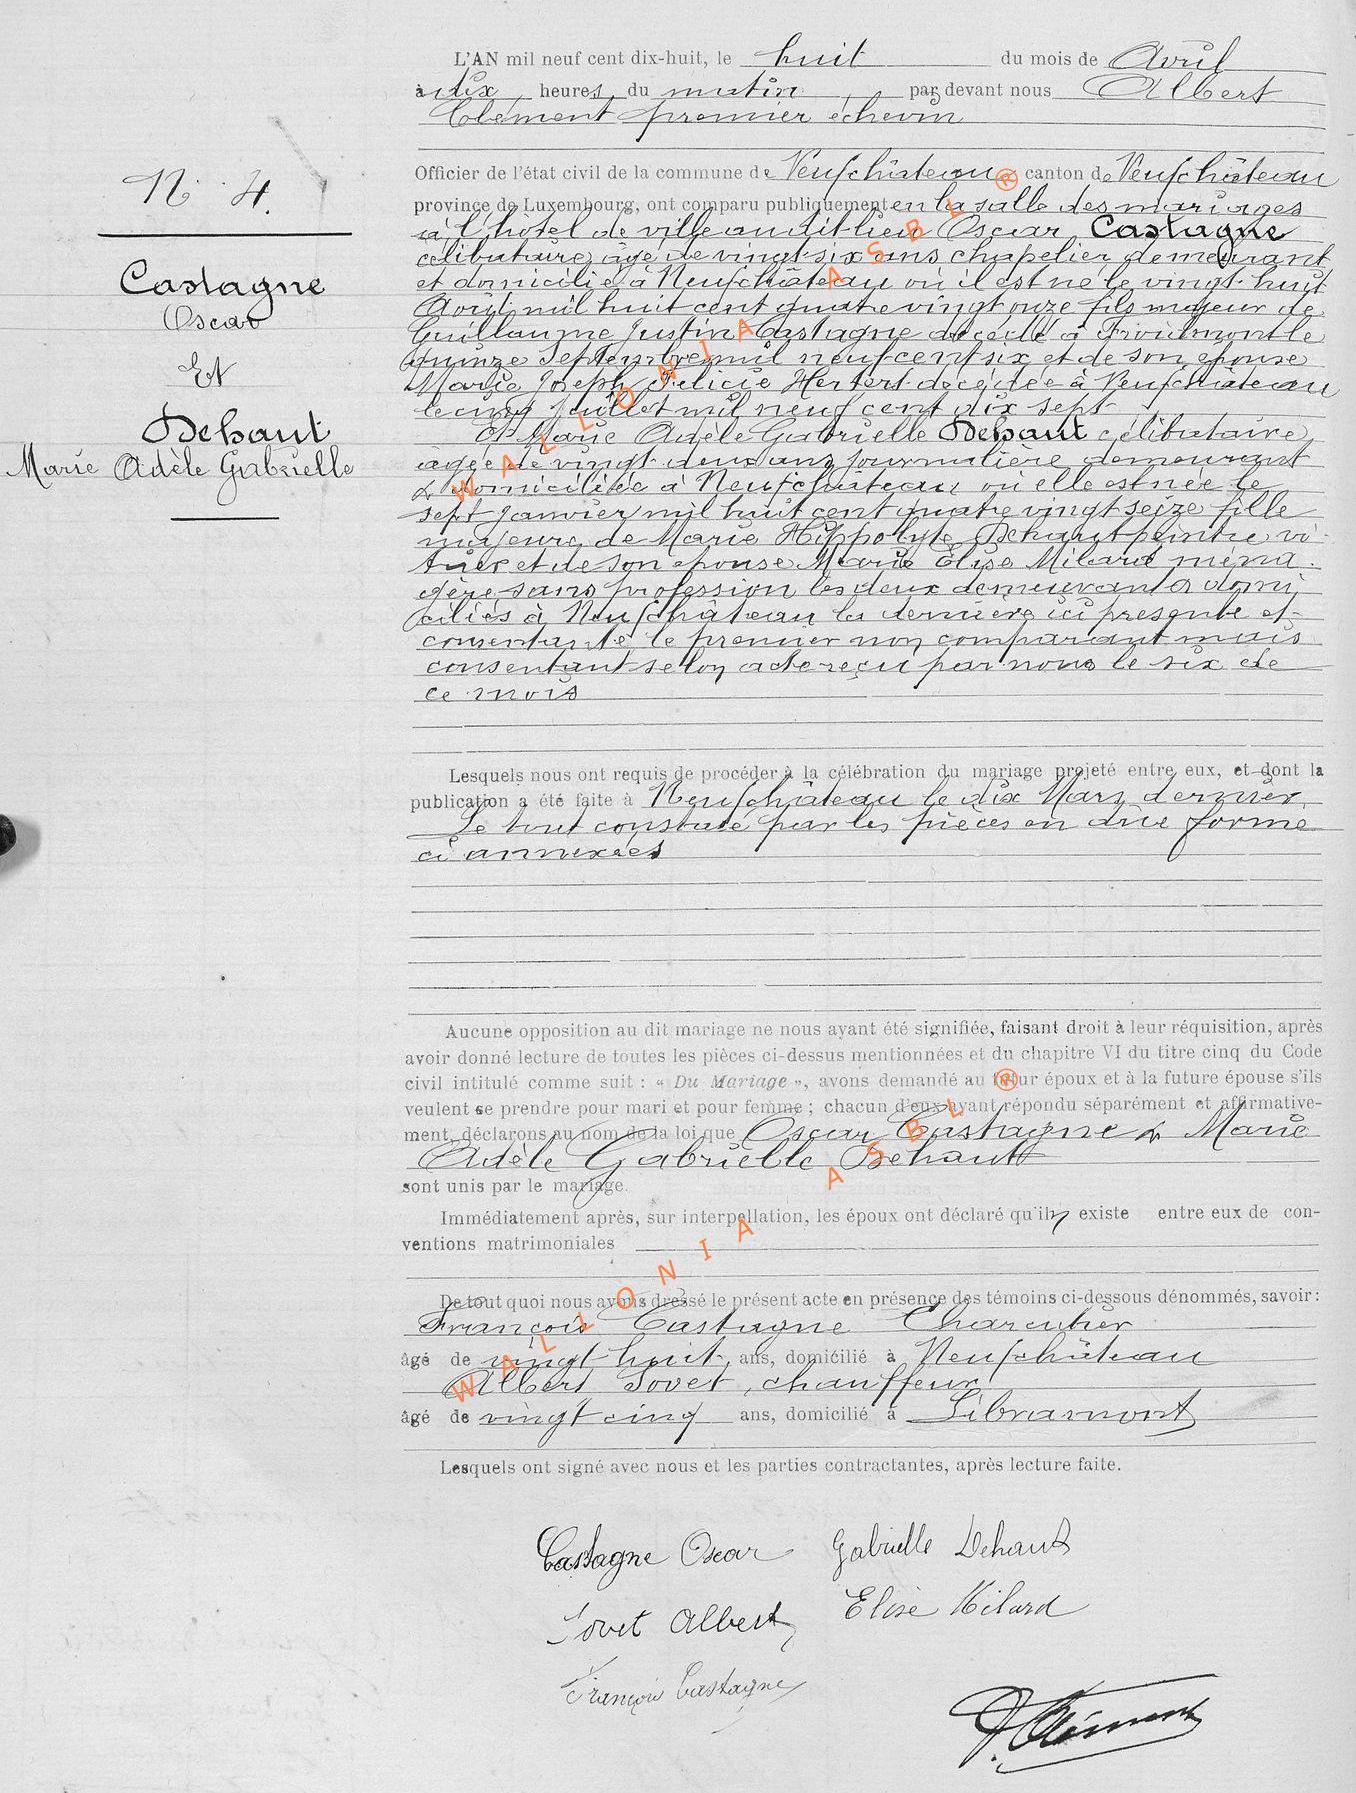 N. 4.
Castagne
Oscar
Et
Dehaut
Marie Adèle Gabrielle
L'AN mil neuf cent dix-huit, le huit du mois de Avril
à dix heures du matin, par devant nous Albert
Clément premier échevin
Officier de l'état civil de la commune de Neufchâteau canton de Neufchâteau
province de Luxembourg, ont comparu publiquement en la salle des mariages
à l'hôtel de ville audit lieu Oscar Castagne
célibataire, âgé de vingt-six ans chapelier demeurant
et domicilié à Neufchâteau où il est né le vingt-huit
Avril mil huit cent quatre vingt onze fils majeur de
Guillaume Justin Castagne décédé à Froidmont le
quinze Septembre mil neuf cent six et de son épouse
Marie Joseph Félicie Herbert décédée à Neufchâteau
le cinq Juillet mil neuf cent dix sept
Et Marie Adèle Gabrielle Dehaut célibataire
âgée de vingt-deux ans journalière demeurant
& domiciliée à Neufchâteau où elle est née le
sept Janvier mil huit cent quatre vingt seize fille
majeure de Marie Hippolyte Dehaut peintre vi-
trier et de son épouse Marie Elise Milard ména-
gère sans profession les deux demeurant & domi
ciliés à Neufchâteau la dernière ici présente et
consentante le premier non comparant mais
consentant selon acte reçu par nous le six de
ce mois
Lesquels nous ont requis de procéder à la célébration du mariage projeté entre eux, et dont la
publication a été faite à Neufchâteau le dix Mars dernier
Le tout constaté par les pièces en due forme
ci annexées
Aucune opposition au dit mariage ne nous ayant été signifiée, faisant droit à leur réquisition, après
avoir donné lecture de toutes les pièces ci-dessus mentionnées et du chapitre VI du titre cinq du Code
civil intitulé comme suit : « Du Mariage », avons demandé au futur époux et à la future épouse s'ils
veulent se prendre pour mari et pour femme ; chacun d'eux ayant répondu séparément et affirmative-
ment, déclarons au nom de la loi que Oscar Castagne & Marie
Adèle Gabrielle Dehaut
sont unis par le mariage.
Immédiatement après, sur interpellation, les époux ont déclaré qu'il n existe entre eux de con-
ventions matrimoniales
De tout quoi nous avons dressé le présent acte en présence des témoins ci-dessous dénommés, savoir :
François Castagne Charcutier
âgé de vingt-huit ans, domicilié à Neufchâteau
Albert Sovet, chauffeur
âgé de vingt cinq ans, domicilié à Libramont
Lesquels ont signé avec nous et les parties contractantes, après lecture faite.
Castagne Oscar Gabrielle Dehaut
Sovet Albert Elise Milard
François Castagne
A. Clément
WALLONIA ASBL ®
WALLONIA ASBL ®